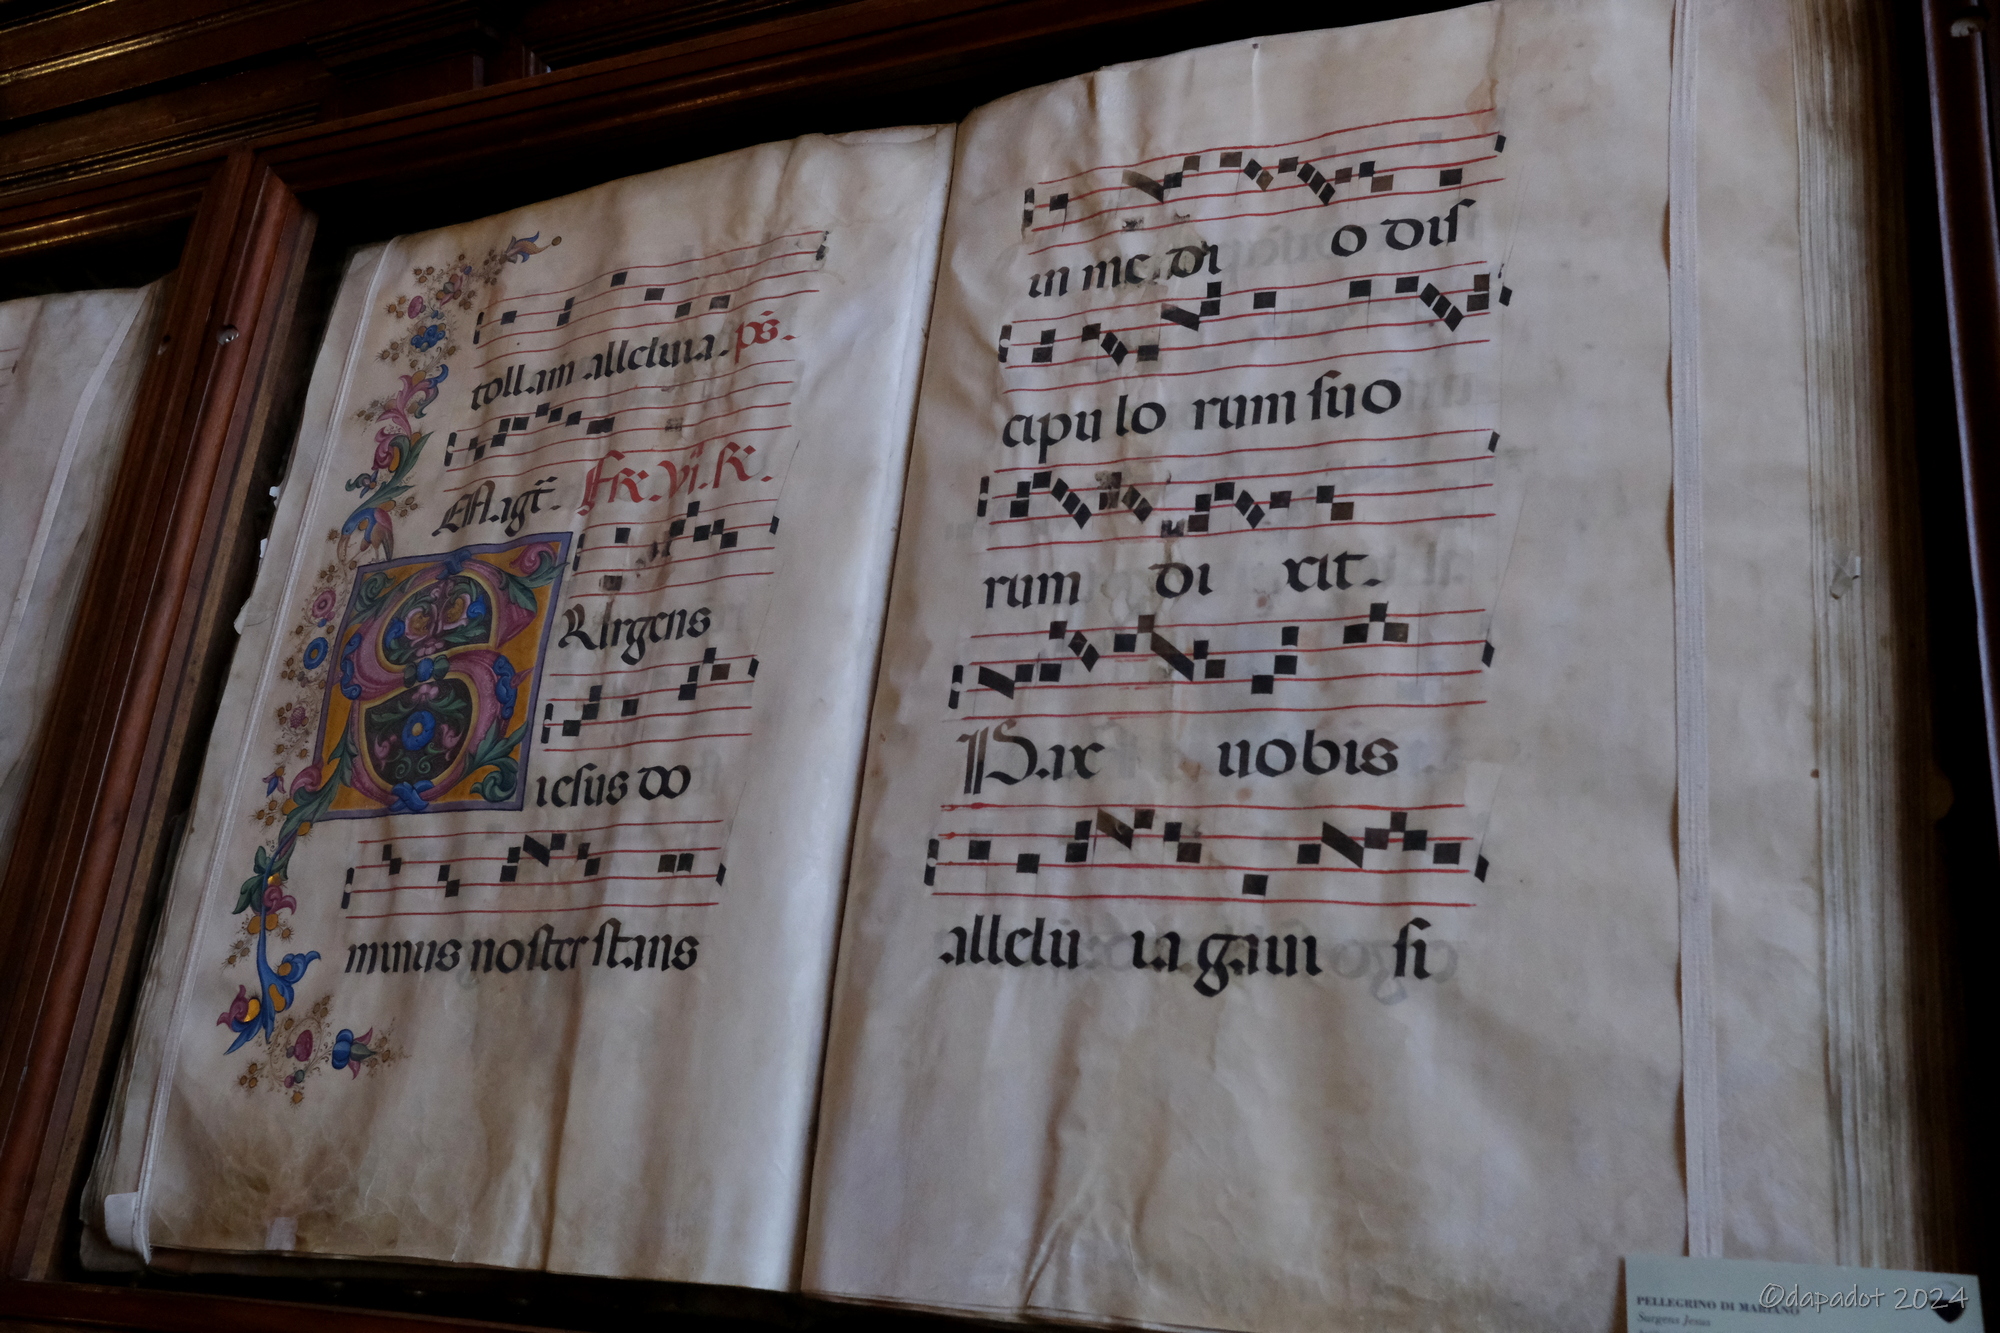 tollam alleluia. ps̄.
Magt̄. Fr̄. vi. R̄.
SURrgens
iesus do
minus noster stans
in me di o dis
cipu lo rum suo
rum di xit.
Pax uobis
allelu ia gaui si
PELLEGRINO DI MARIANO
Surgens Jesus
©dapadot 2024